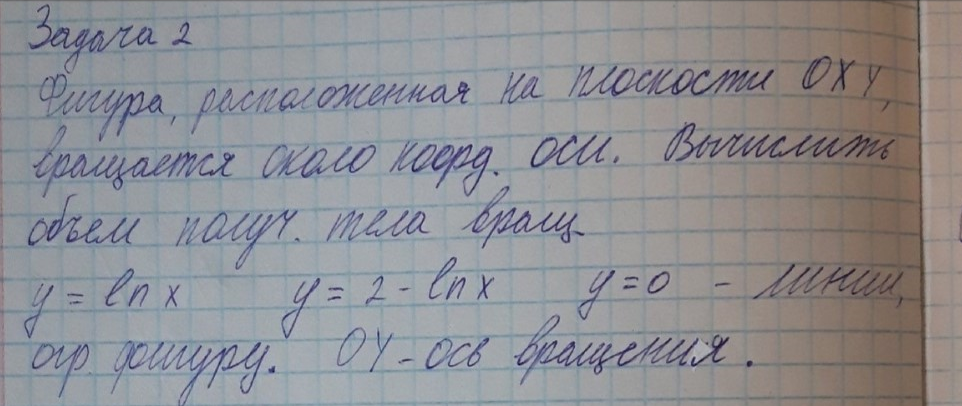 Задача 2
Фигура, расположенная на плоскости OXY,
вращается около коорд. оси. Вычислить
объем получ. тела вращ.
y = ln x y = 2 - ln x y = 0 - линии,
огр. фигуру. OY - ось вращения.